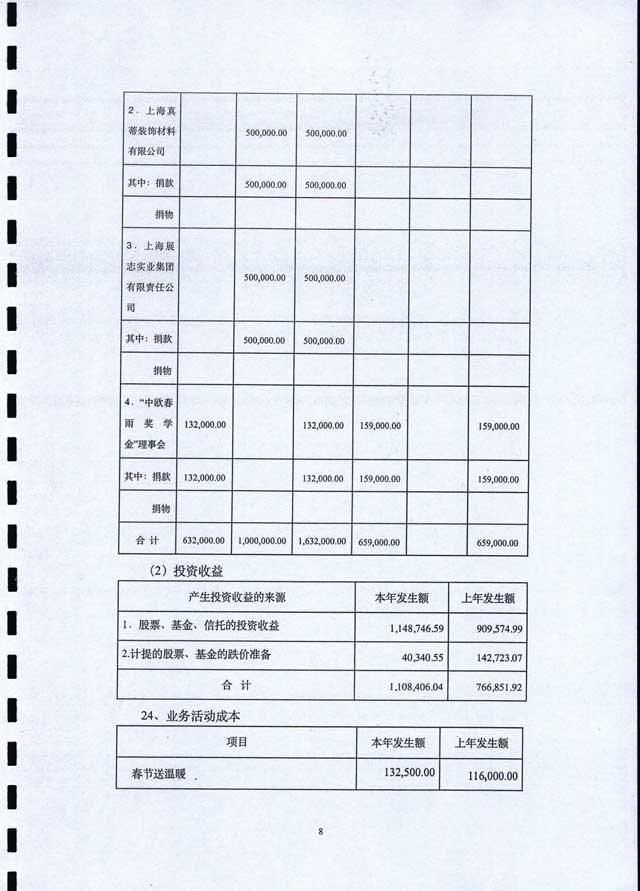 2．上海真
蒂装饰材料
有限公司
500,000.00 500,000.00
其中：捐款 500,000.00 500,000.00
捐物
3．上海展
志实业集团
有限责任公
司
500,000.00 500,000.00
其中：捐款 500,000.00 500,000.00
捐物
4．“中欧春
雨奖学
金”理事会
132,000.00 132,000.00 159,000.00 159,000.00
其中：捐款 132,000.00 132,000.00 159,000.00 159,000.00
捐物
合计 632,000.00 1,000,000.00 1,632,000.00 659,000.00 659,000.00
（2）投资收益
产生投资收益的来源 本年发生额 上年发生额
1．股票、基金、信托的投资收益 1,148,746.59 909,574.99
2.计提的股票、基金的跌价准备 40,340.55 142,723.07
合计 1,108,406.04 766,851.92
24、业务活动成本
项目 本年发生额 上年发生额
春节送温暖 132,500.00 116,000.00
8